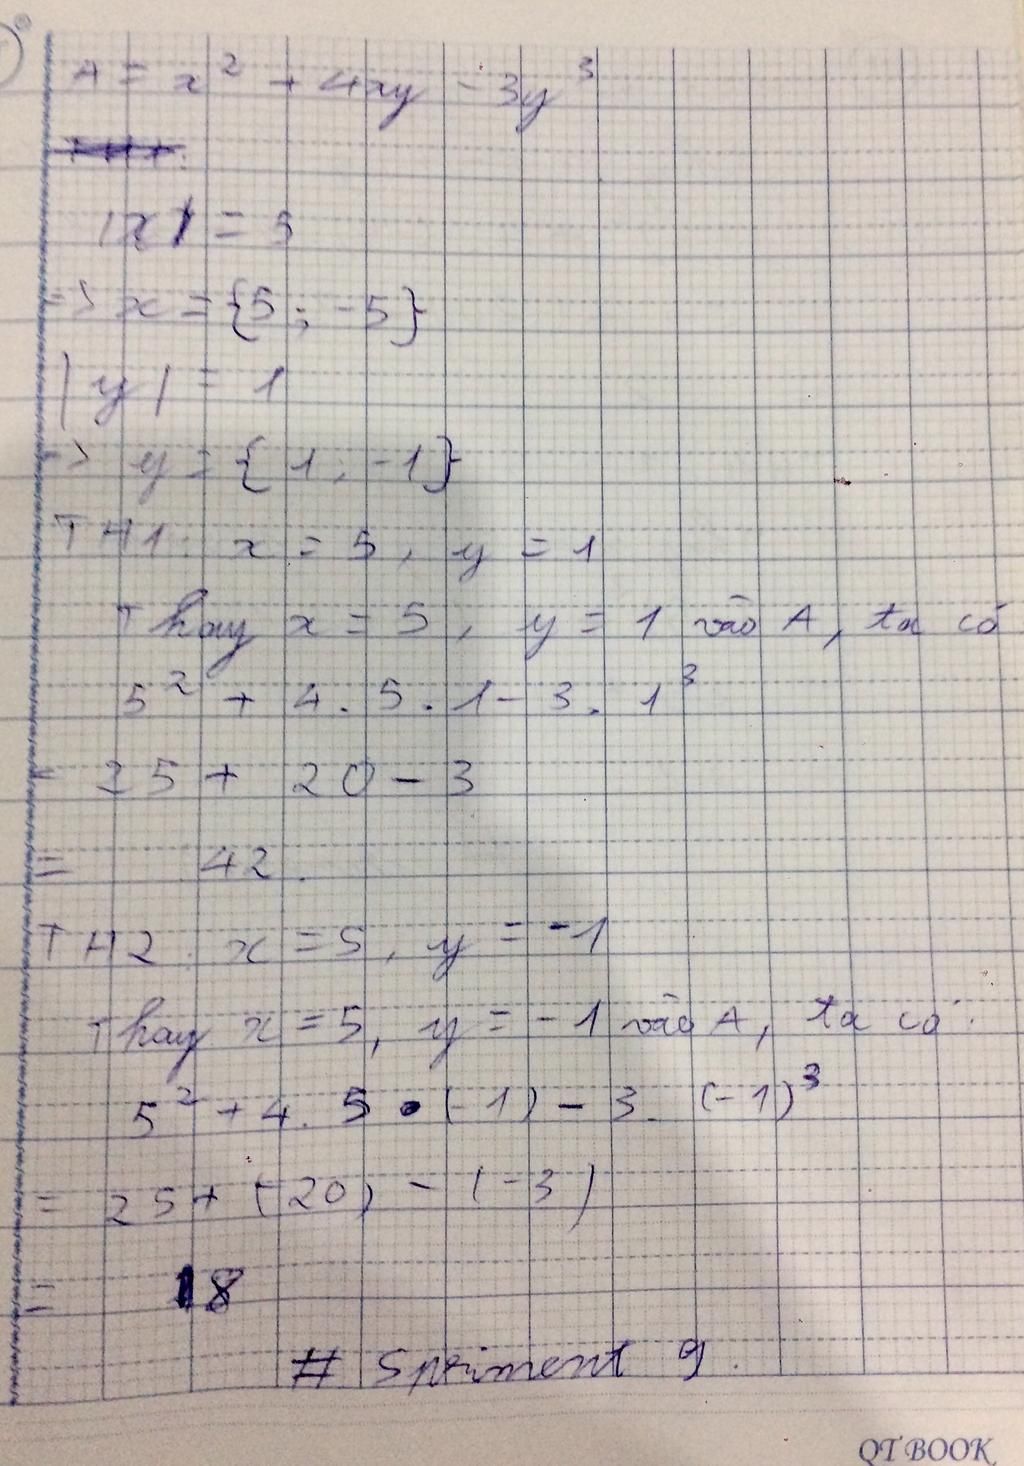 A = x² + 4xy - 3y³
|x| = 5
=> x = {5; -5}
|y| = 1
=> y = {1, -1}
TH1: x = 5, y = 1
Thay x = 5, y = 1 vào A, ta có
5² + 4. 5. 1 - 3. 1³
= 25 + 20 - 3
= 42.
TH2: x = 5, y = -1
Thay x = 5, y = -1 vào A, ta có:
5² + 4. 5 . (-1) - 3. (-1)³
= 25 + (-20) - (-3)
= 18
# Spriment 9.
QT BOOK